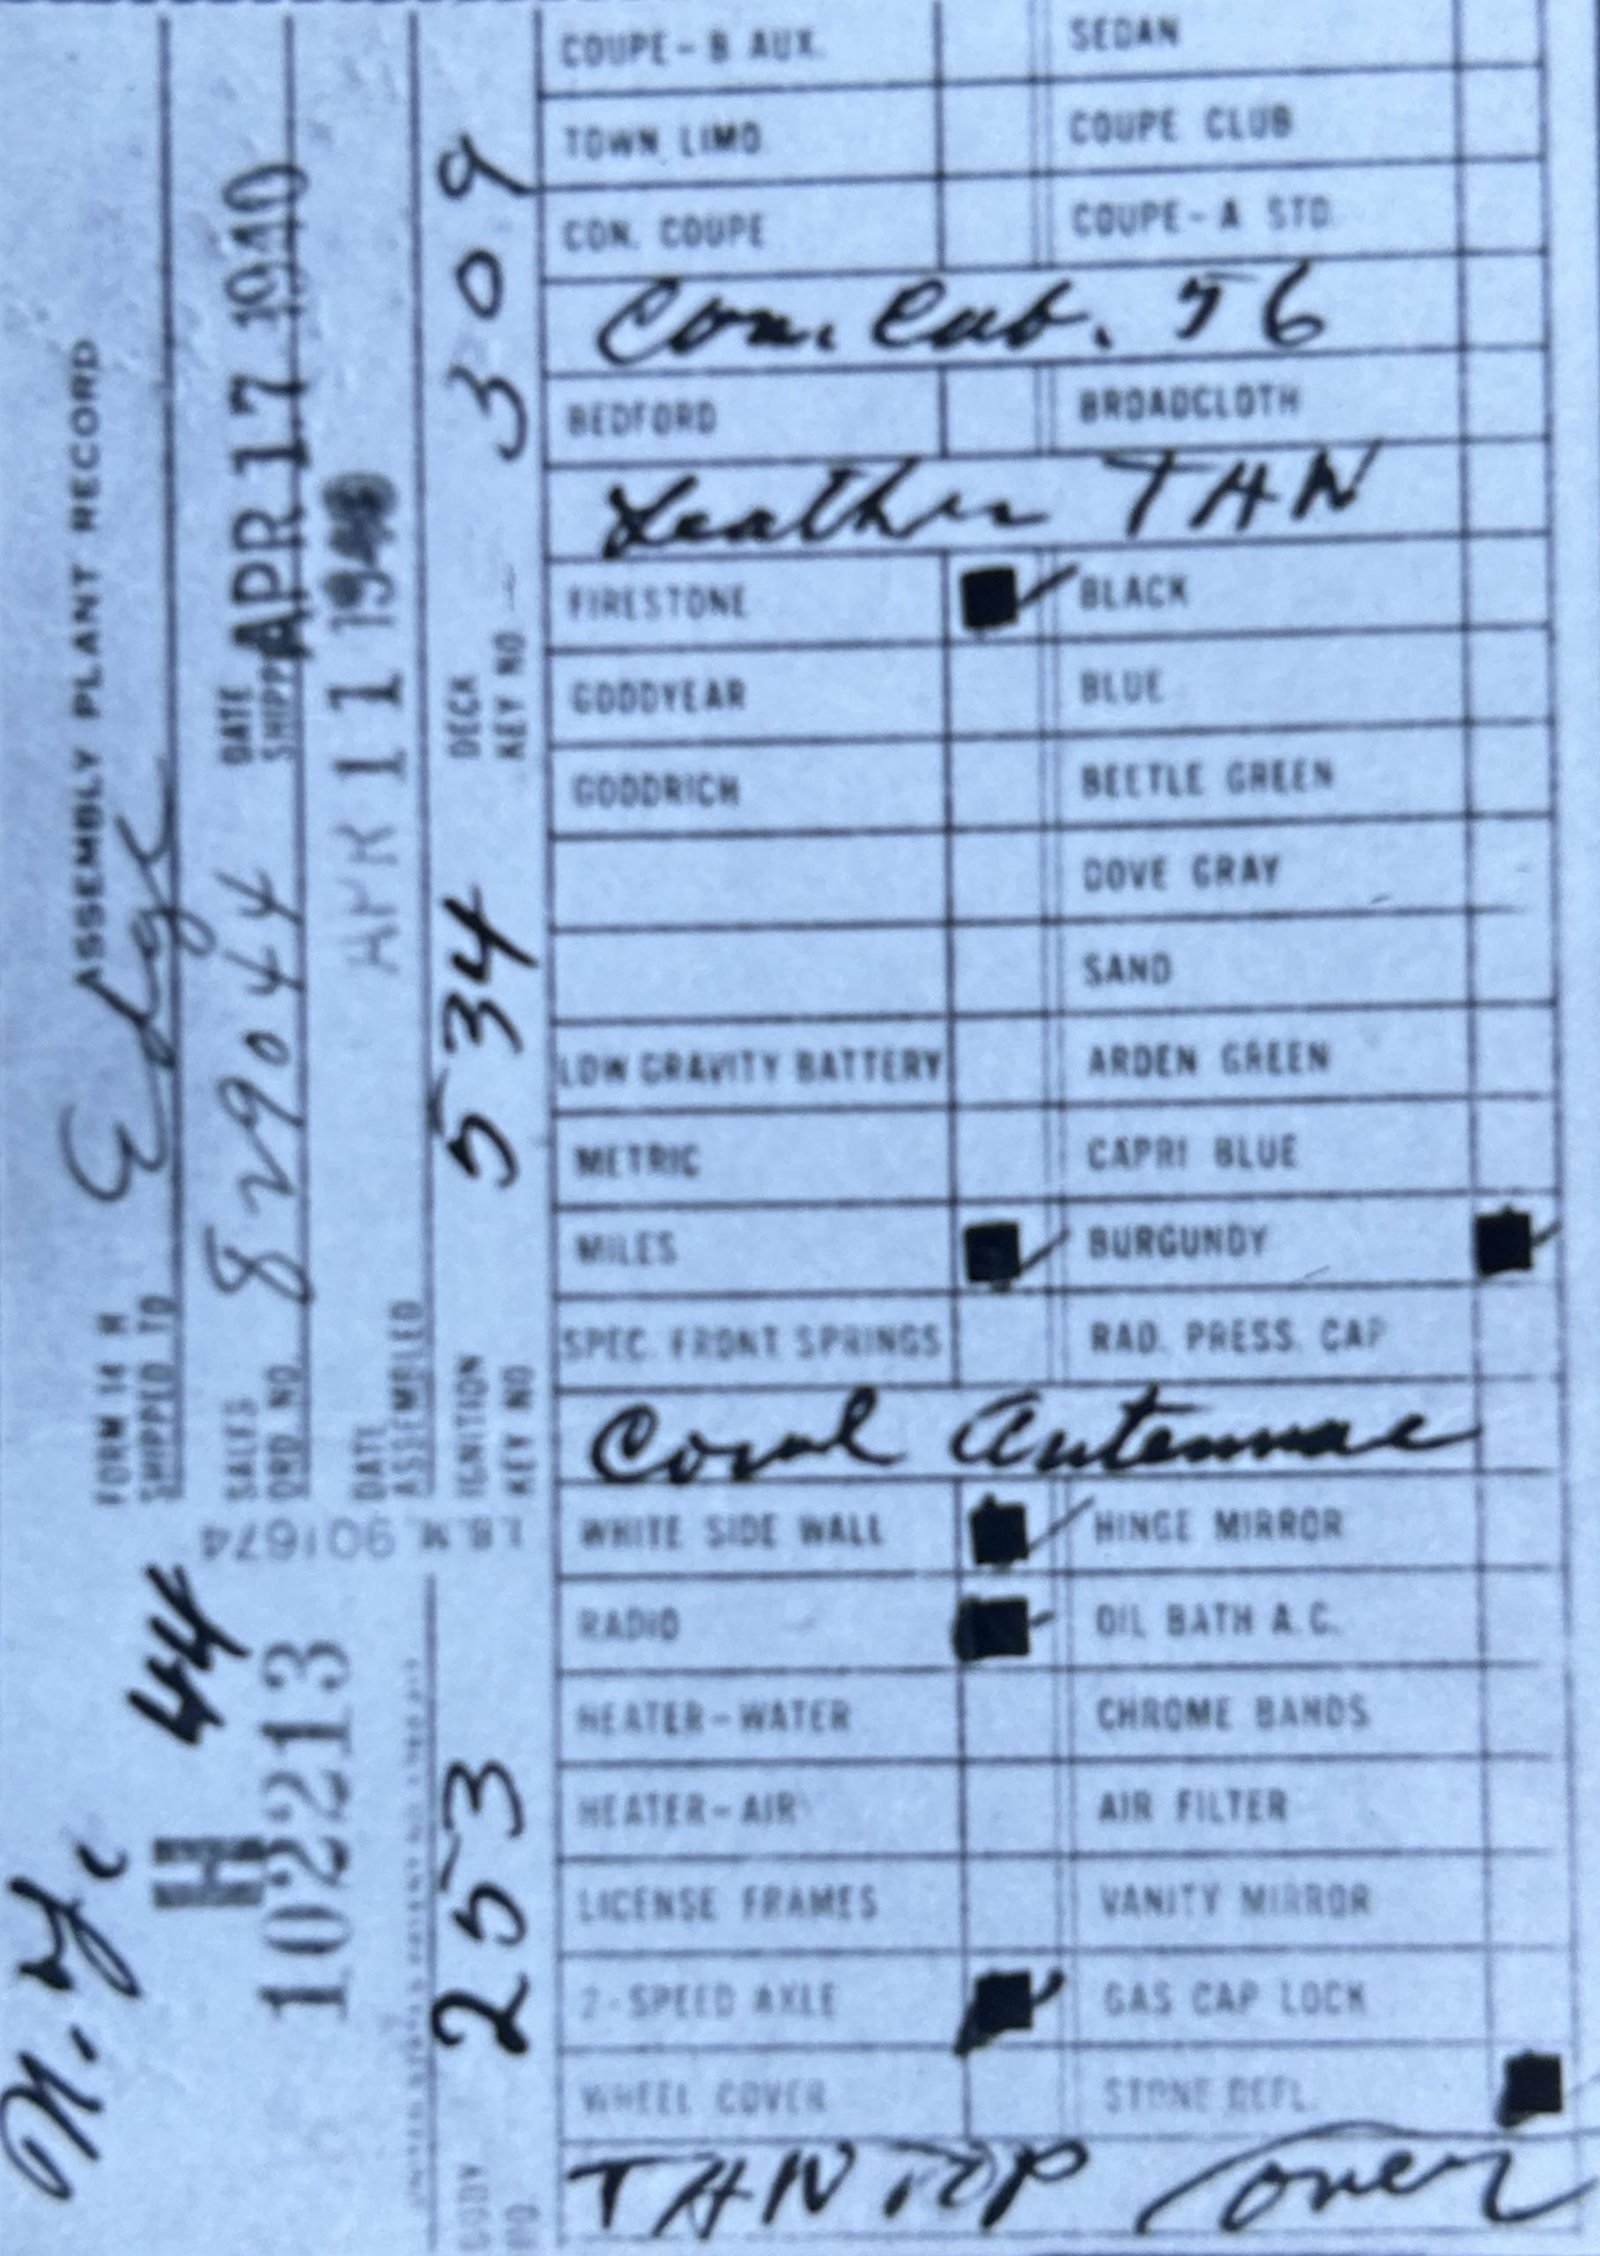 N.Y.C
44
H
102213
FORM 14 H ASSEMBLY PLANT RECORD
SHIPPED TO Edgr
SALES ORD NO. 829044 DATE SHIPP APR 17 1940
DATE ASSEMBLED APR 11 19
I.B.M. 901674
BODY NO. 253 IGNITION KEY NO 534 DECK KEY NO 309
COUPE-B AUX. SEDAN
TOWN LIMO COUPE CLUB
CON. COUPE COUPE-A STD.
Con. Cab. 56
BEDFORD BROADCLOTH
Leather TAN
FIRESTONE BLACK
GOODYEAR BLUE
GOODRICH BEETLE GREEN
DOVE GRAY
SAND
LOW GRAVITY BATTERY ARDEN GREEN
METRIC CAPRI BLUE
MILES BURGUNDY
SPEC. FRONT SPRINGS RAD. PRESS. CAP
Cowl Antennae
WHITE SIDE WALL HINGE MIRROR
RADIO OIL BATH A.C.
HEATER-WATER CHROME BANDS
HEATER-AIR AIR FILTER
LICENSE FRAMES VANITY MIRROR
2-SPEED AXLE GAS CAP LOCK
WHEEL COVER STONE DEFL.
TAN TOP over